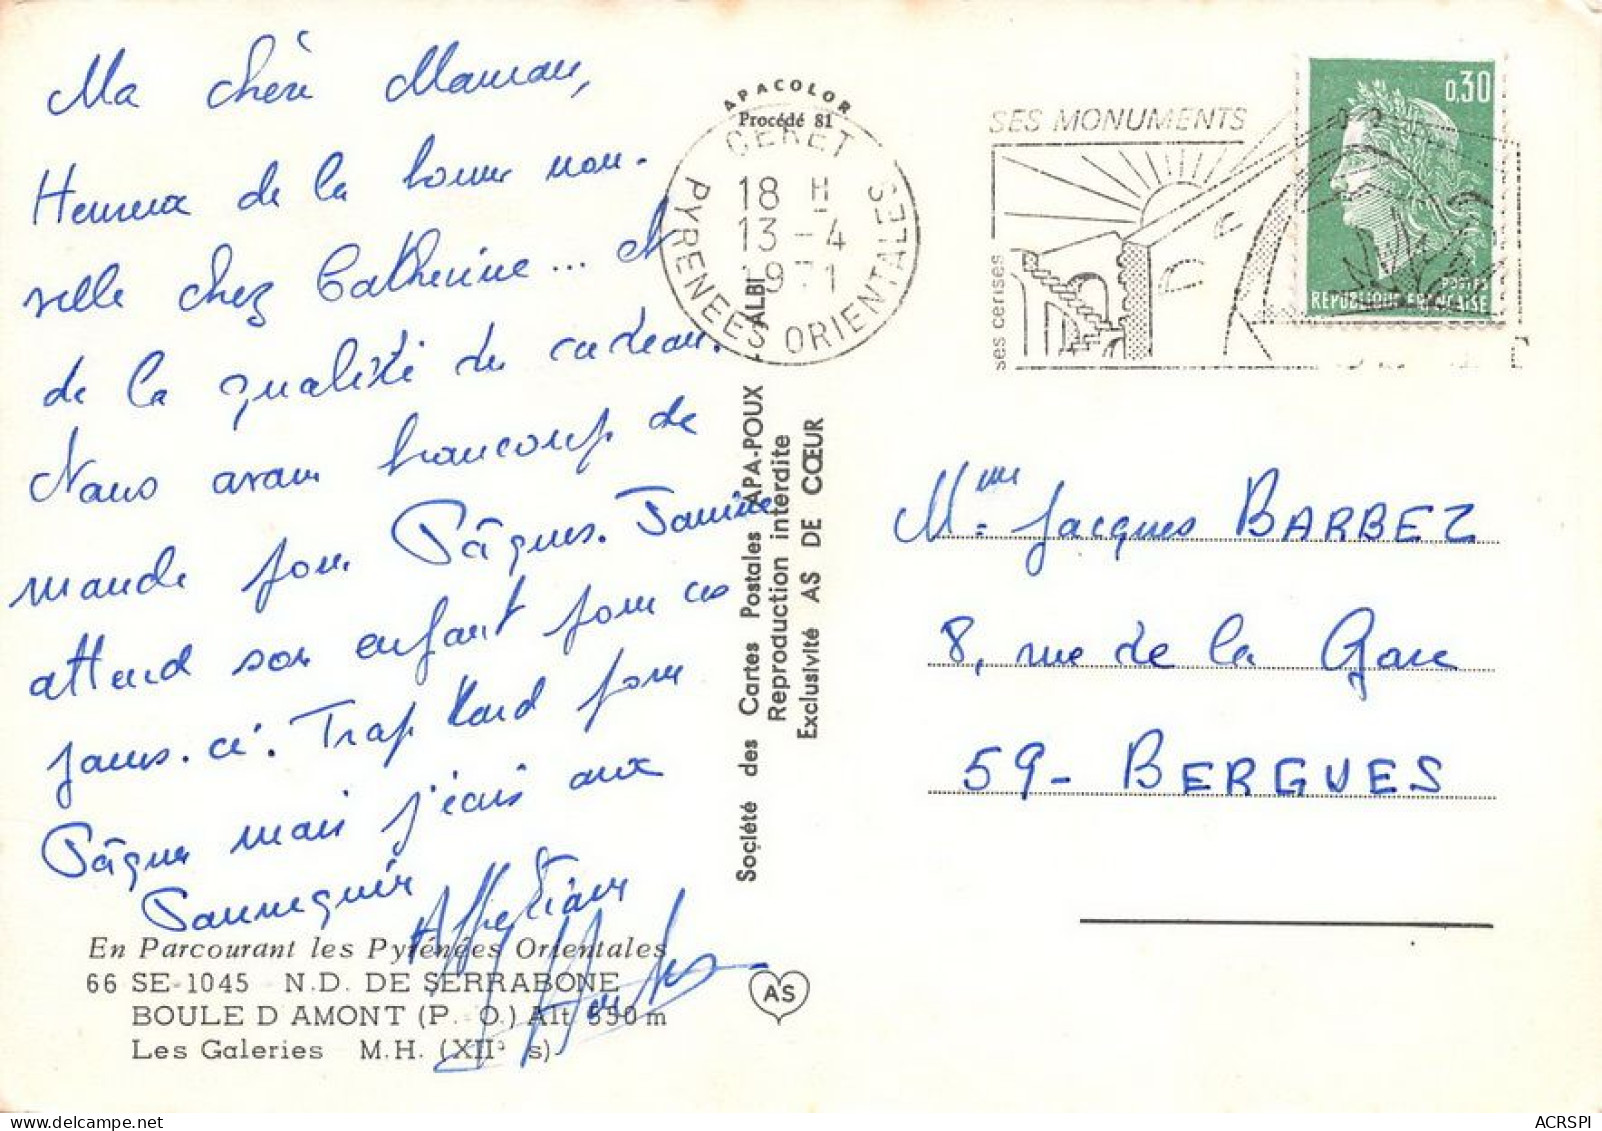 Ma chère Maman,
Heureux de la bonne nou-
velle chez Catherine... et
de la qualité du cadeau.
Nous avons beaucoup de
monde pour Pâques. Janine
attend son enfant pour ces
jours-ci. Trop tard pour
Pâques mais j'écris aux
Affections
En Parcourant les Pyrénées Orientales
66 SE-1045 N.D. DE SERRABONE
BOULE D AMONT (P. O.) Alt 650 m
Les Galeries M.H. (XIIº s)
APACOLOR
Procédé 81
CERET
18 H
13-4
1971
PYRENEES ORIENTALES
ALBI
Société des Cartes Postales APA-POUX
Reproduction interdite
Exclusivité AS DE CŒUR
AS
SES MONUMENTS
ses cerises
0,30
POSTES
REPUBLIQUE FRANÇAISE
Mme Jacques BARBEZ
8, rue de la Gare
59- BERGUES
ACRSPI